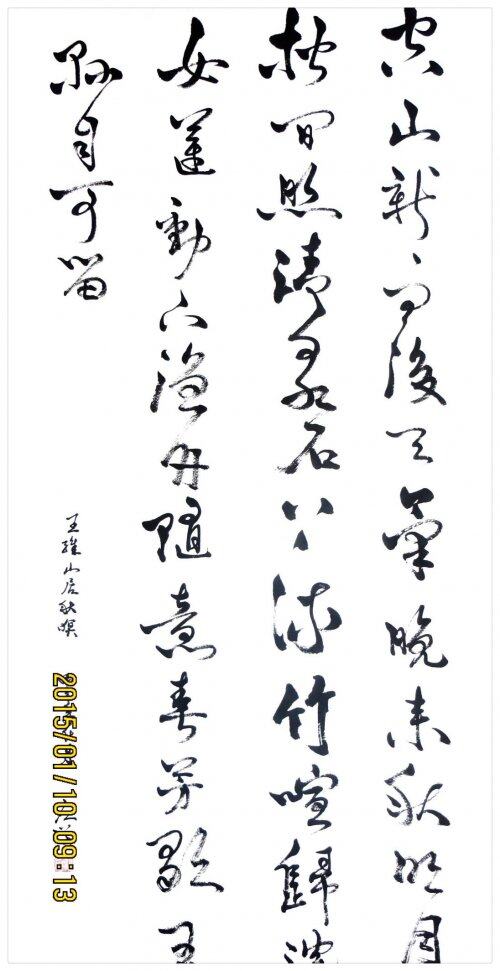 空山新雨後天氣晚来秋明月
松間照清泉石上流竹喧歸浣
女蓮動下漁舟隨意春芳歇王
孫自可留
王維山居秋暝
2015/01/10 09:13